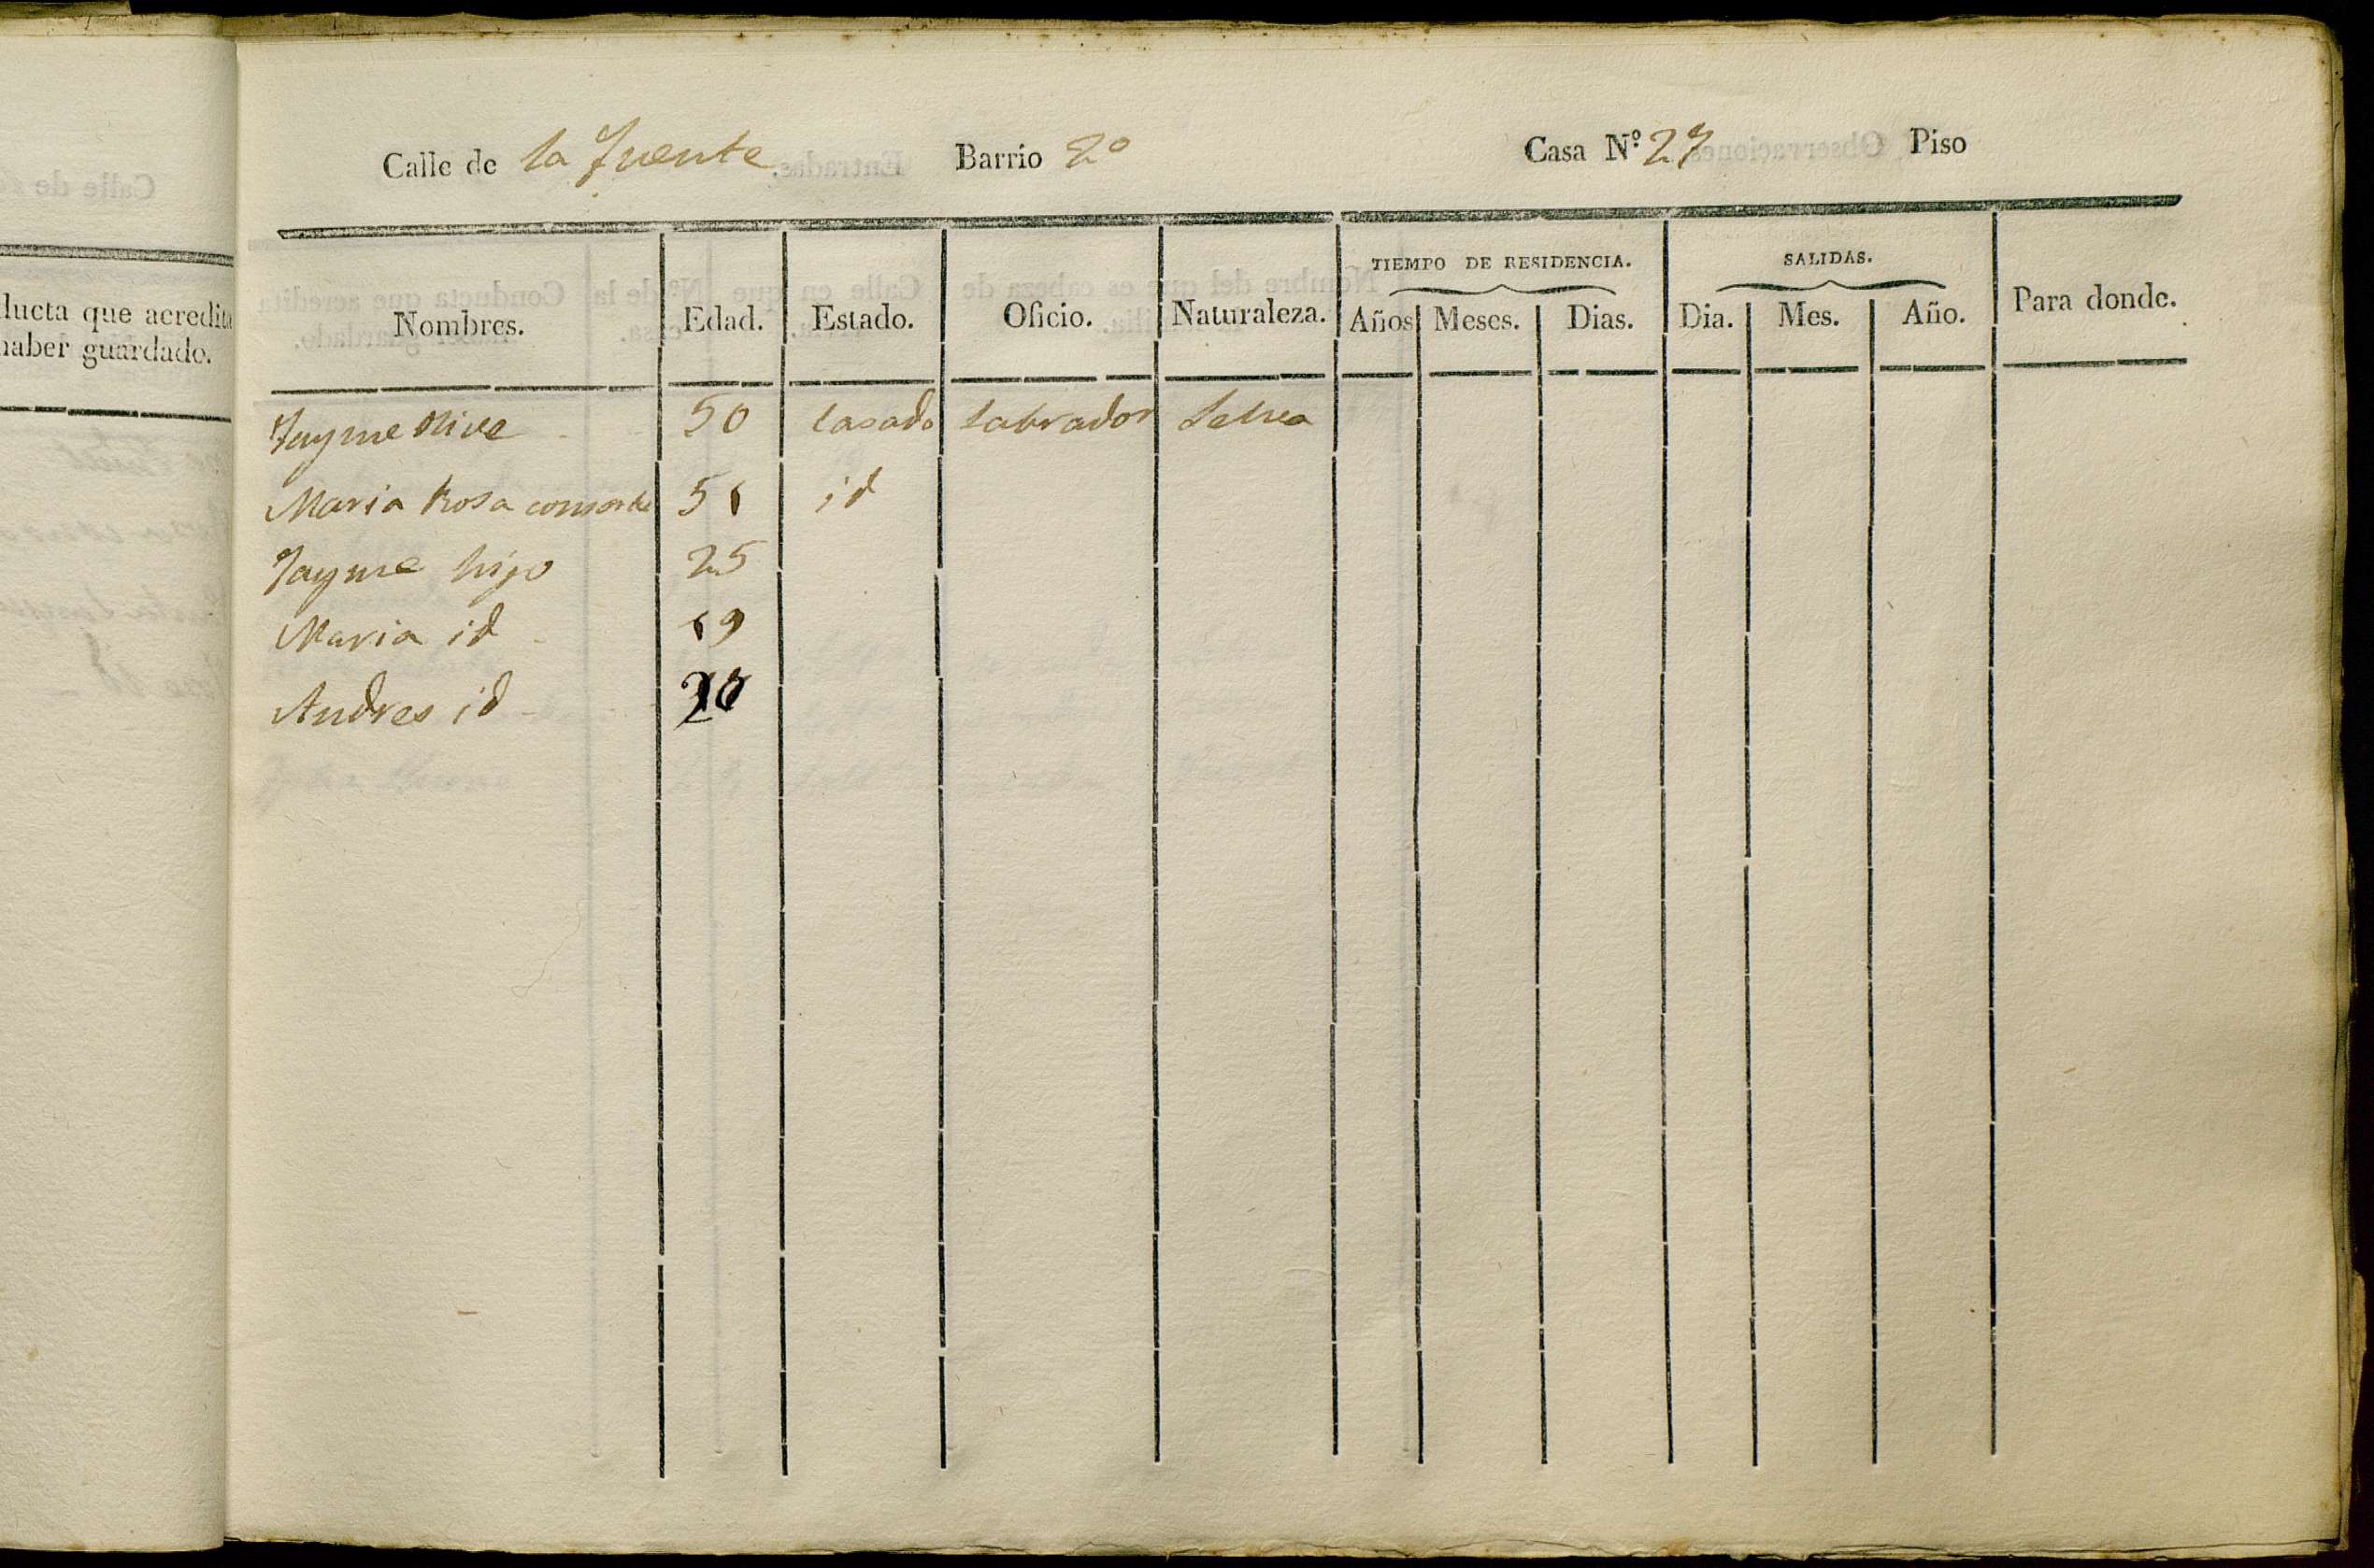 Calle de la fuente Barrio 2º Casa Nº 27 Piso
ducta que acredita
haber guardado.
TIEMPO DE RESIDENCIA. SALIDAS.
Nombres. Edad. Estado. Oficio. Naturaleza. Años Meses. Dias. Dia. Mes. Año. Para donde.
Jayme Olive 50 Casado Labrador Selva
Maria Rosa consorte 51 id
Jayme hijo 25
Maria id 19
Andres id 20